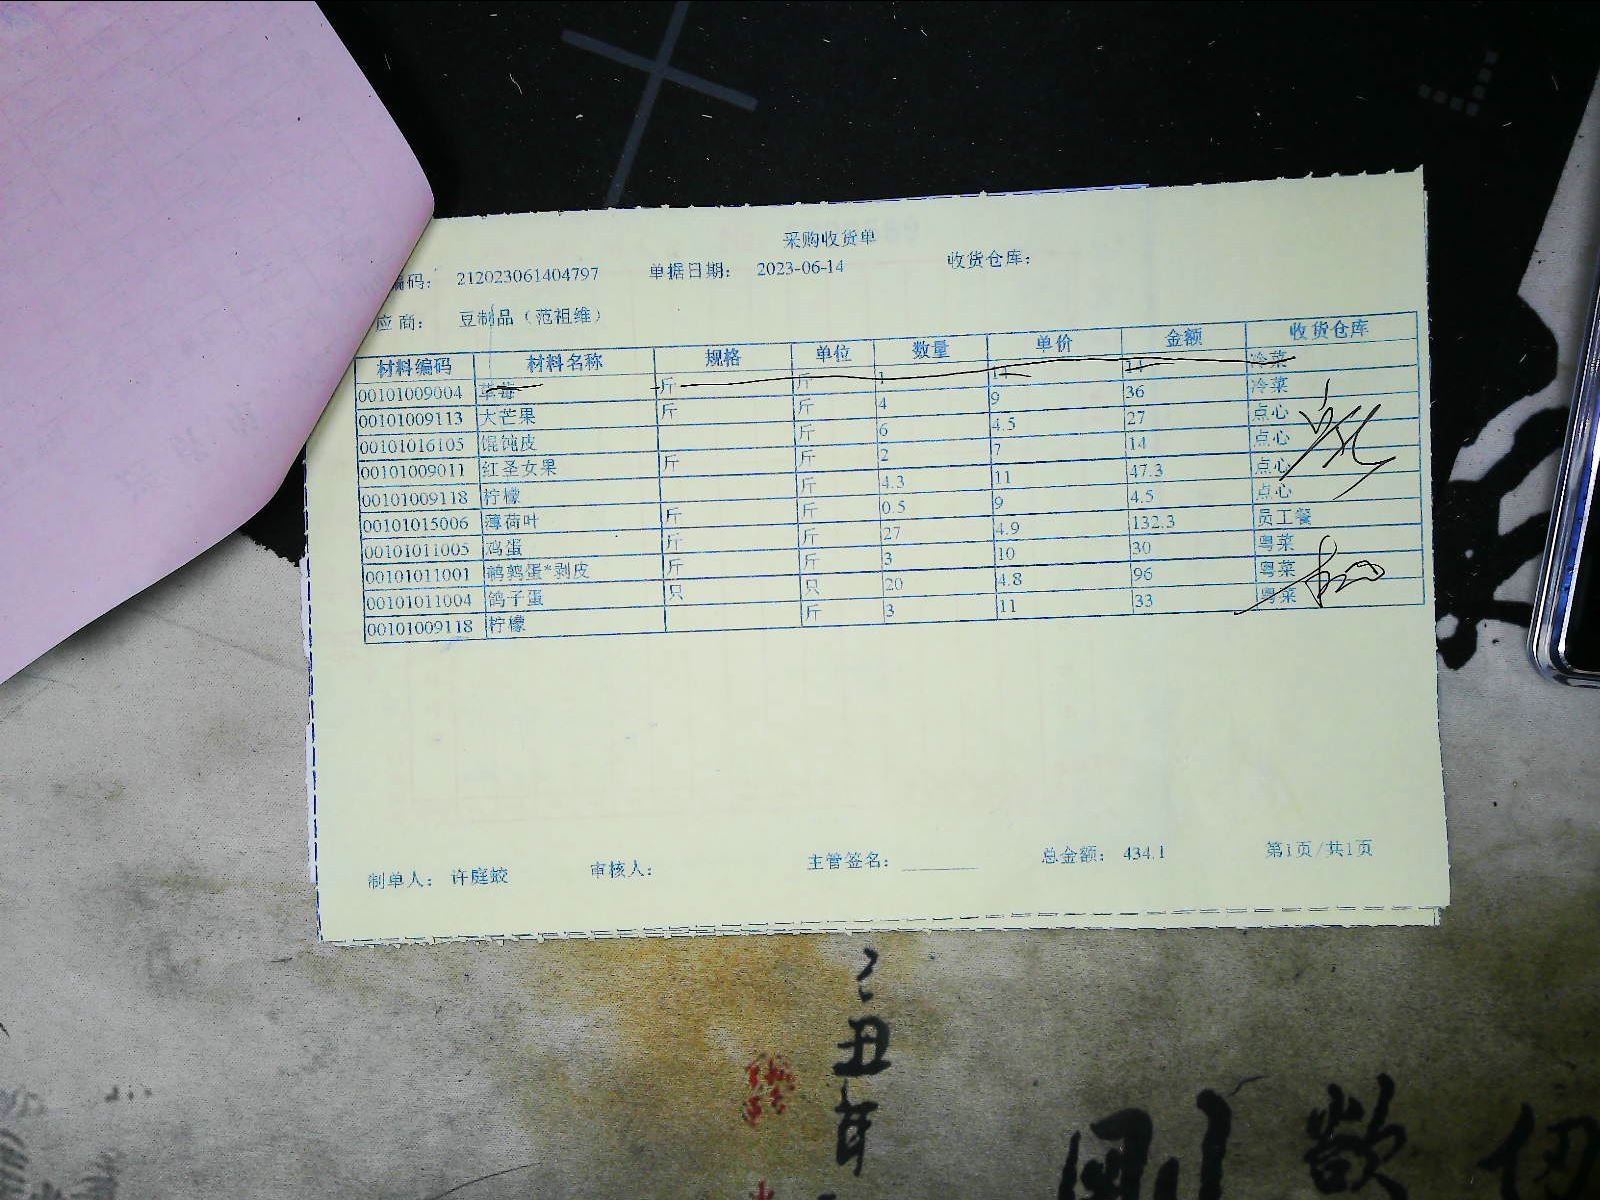 采购收货单
编码： 212023061404797 单据日期： 2023-06-14 收货仓库：
应商： 豆制品（范祖维）
材料编码 材料名称 规格 单位 数量 单价 金额 收货仓库
00101009004 草莓 斤 斤 1 14 14 冷菜
00101009113 大芒果 斤 斤 4 9 36 冷菜
00101016105 馄饨皮 斤 6 4.5 27 点心
00101009011 红圣女果 斤 斤 2 7 14 点心
00101009118 柠檬 斤 4.3 11 47.3 点心
00101015006 薄荷叶 斤 斤 0.5 9 4.5 点心
00101011005 鸡蛋 斤 斤 27 4.9 132.3 员工餐
00101011001 鹌鹑蛋*剥皮 斤 斤 3 10 30 粤菜
00101011004 鸽子蛋 只 只 20 4.8 96 粤菜
00101009118 柠檬 斤 3 11 33 粤菜
制单人： 许庭蛟 审核人： 主管签名： 总金额： 434.1 第1页/共1页
丑年
剛 欲